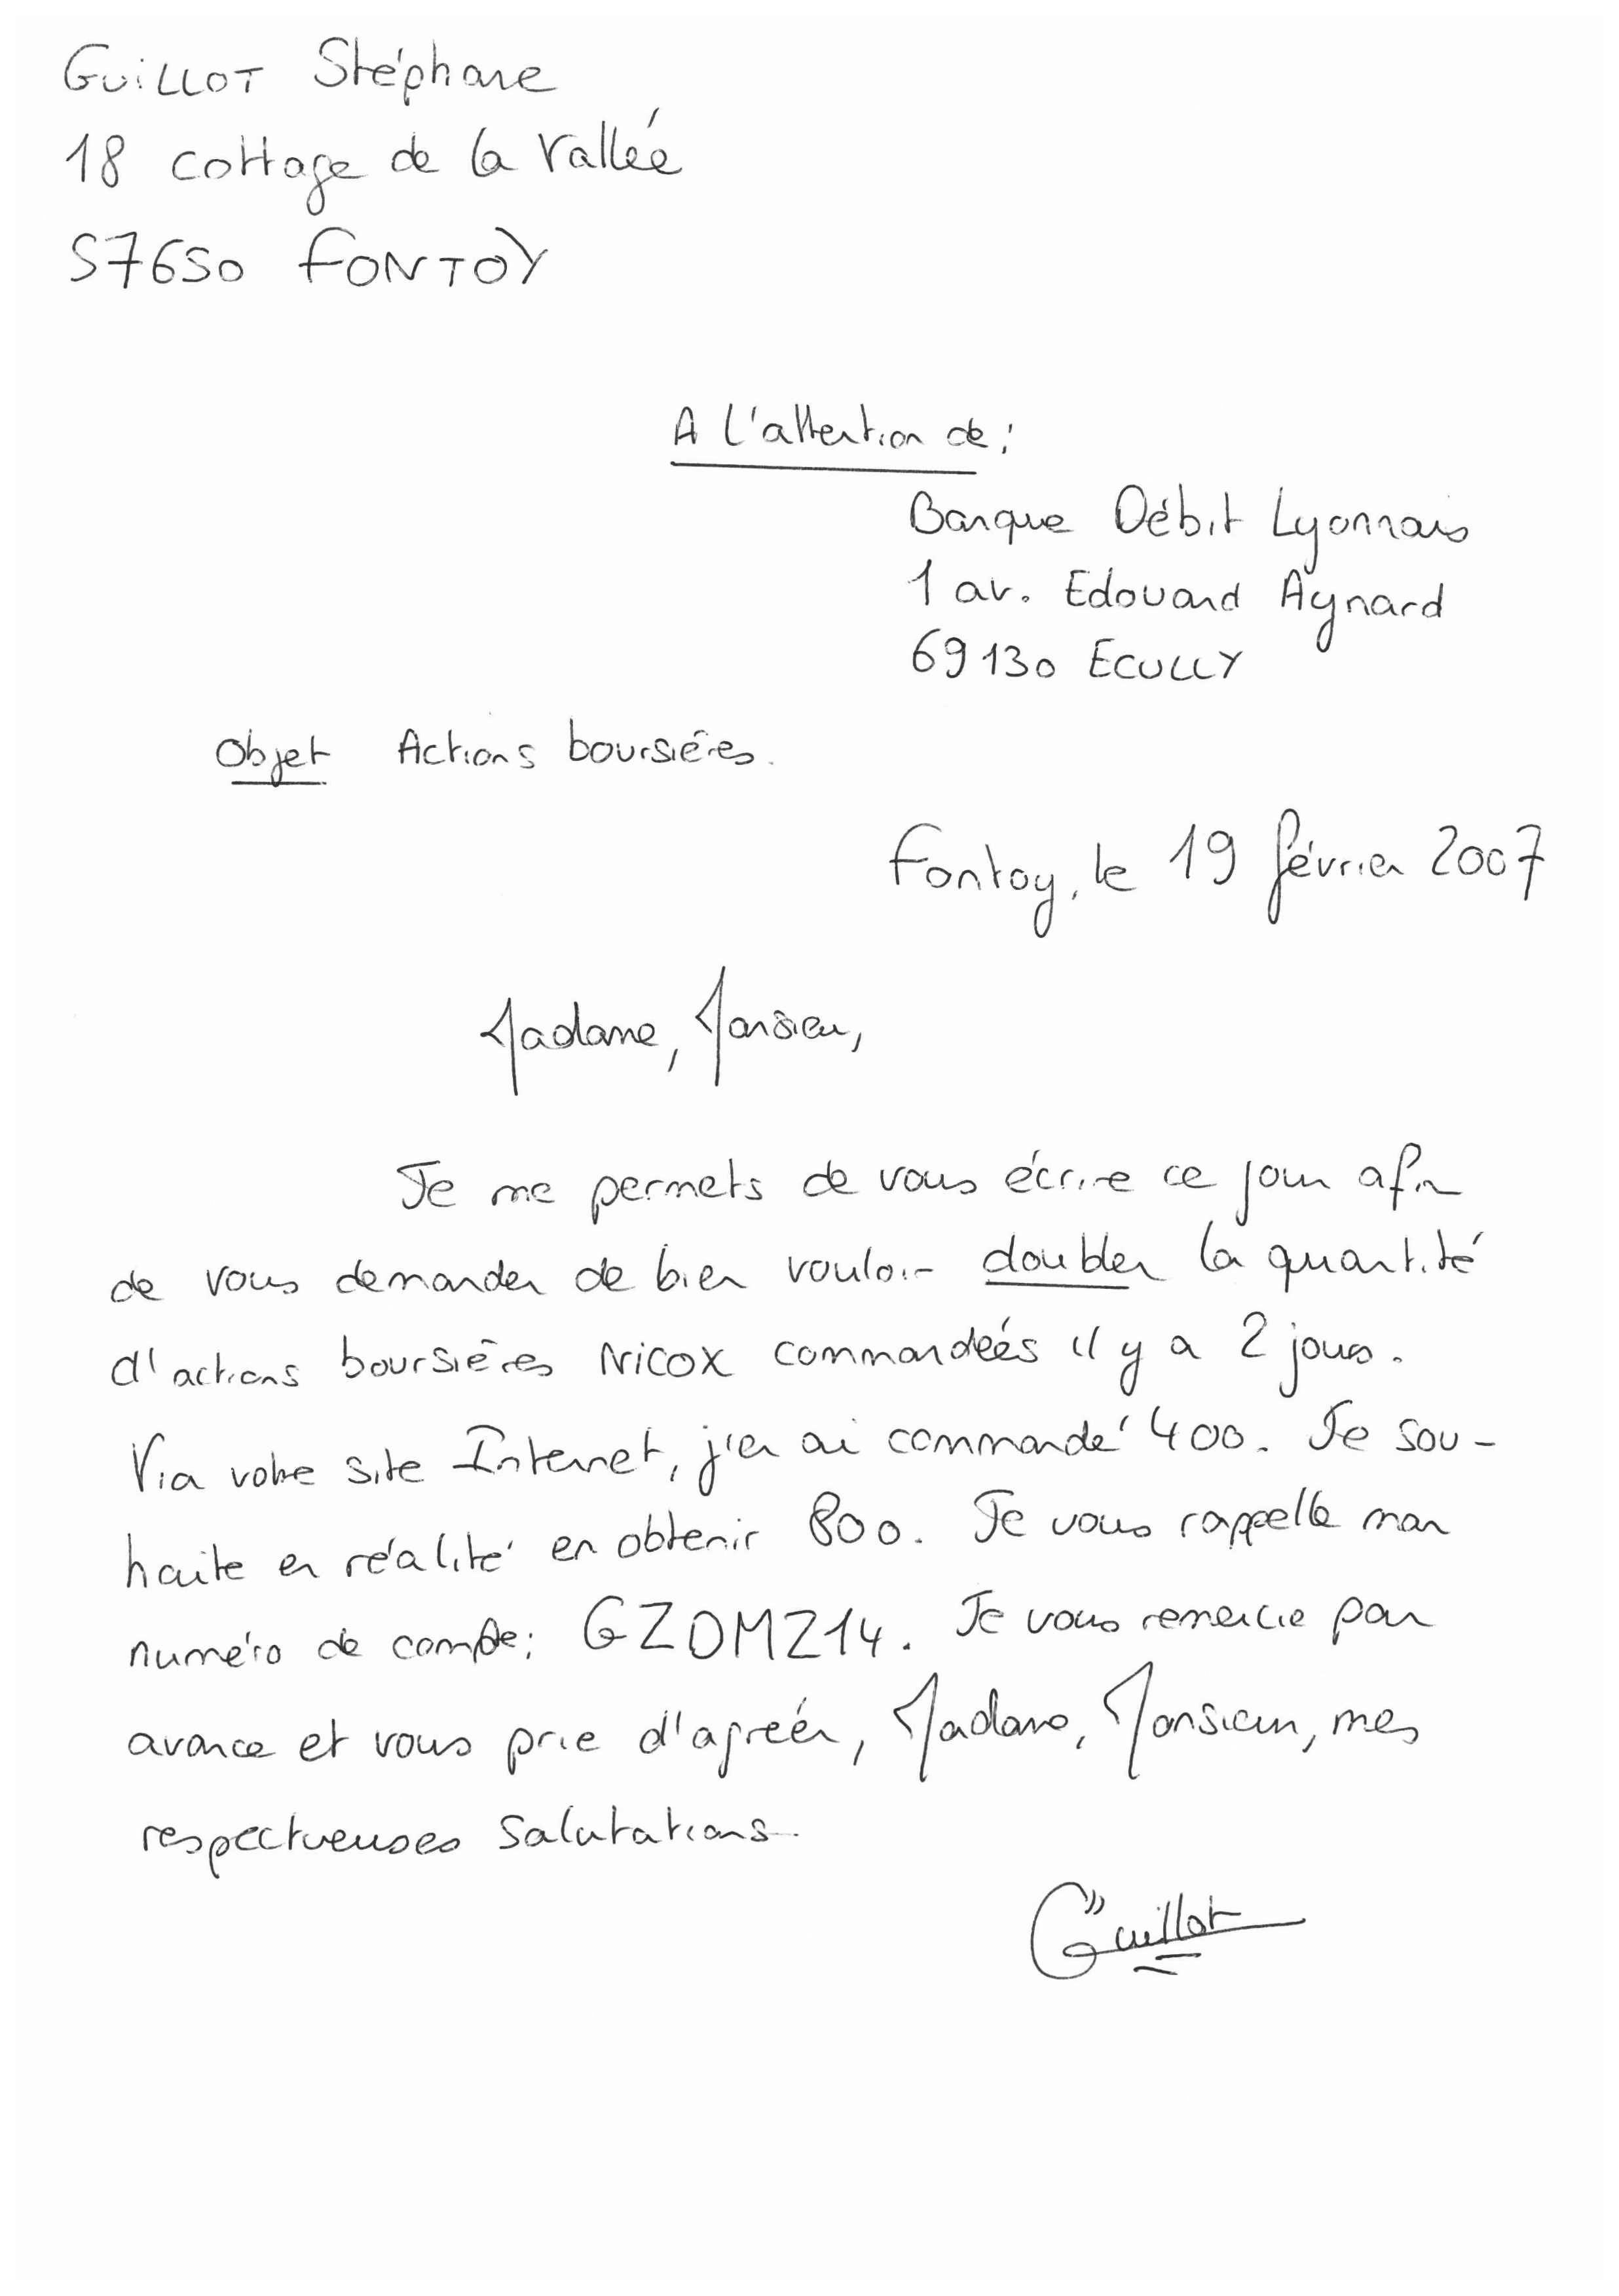 GUILLOT Stéphane
18 cottage de la Vallée
57650 FONTOY
A l'attention de :
Banque Débit Lyonnais
1 av. Edouard Aynard
69130 ECULLY
Objet Actions boursières.
Fontoy, le 19 février 2007
Madame, Monsieur,
Je me permets de vous écrire ce jour afin
de vous demander de bien vouloir doubler la quantité
d'actions boursières NICOX commandées il y a 2 jours.
Via votre site Internet, j'en ai commandé 400. Je sou-
haite en réalité en obtenir 800. Je vous rappelle mon
numéro de compte : GZOMZ14. Je vous remercie par
avance et vous prie d'agréer, Madame, Monsieur, mes
respectueuses salutations.
Guillot